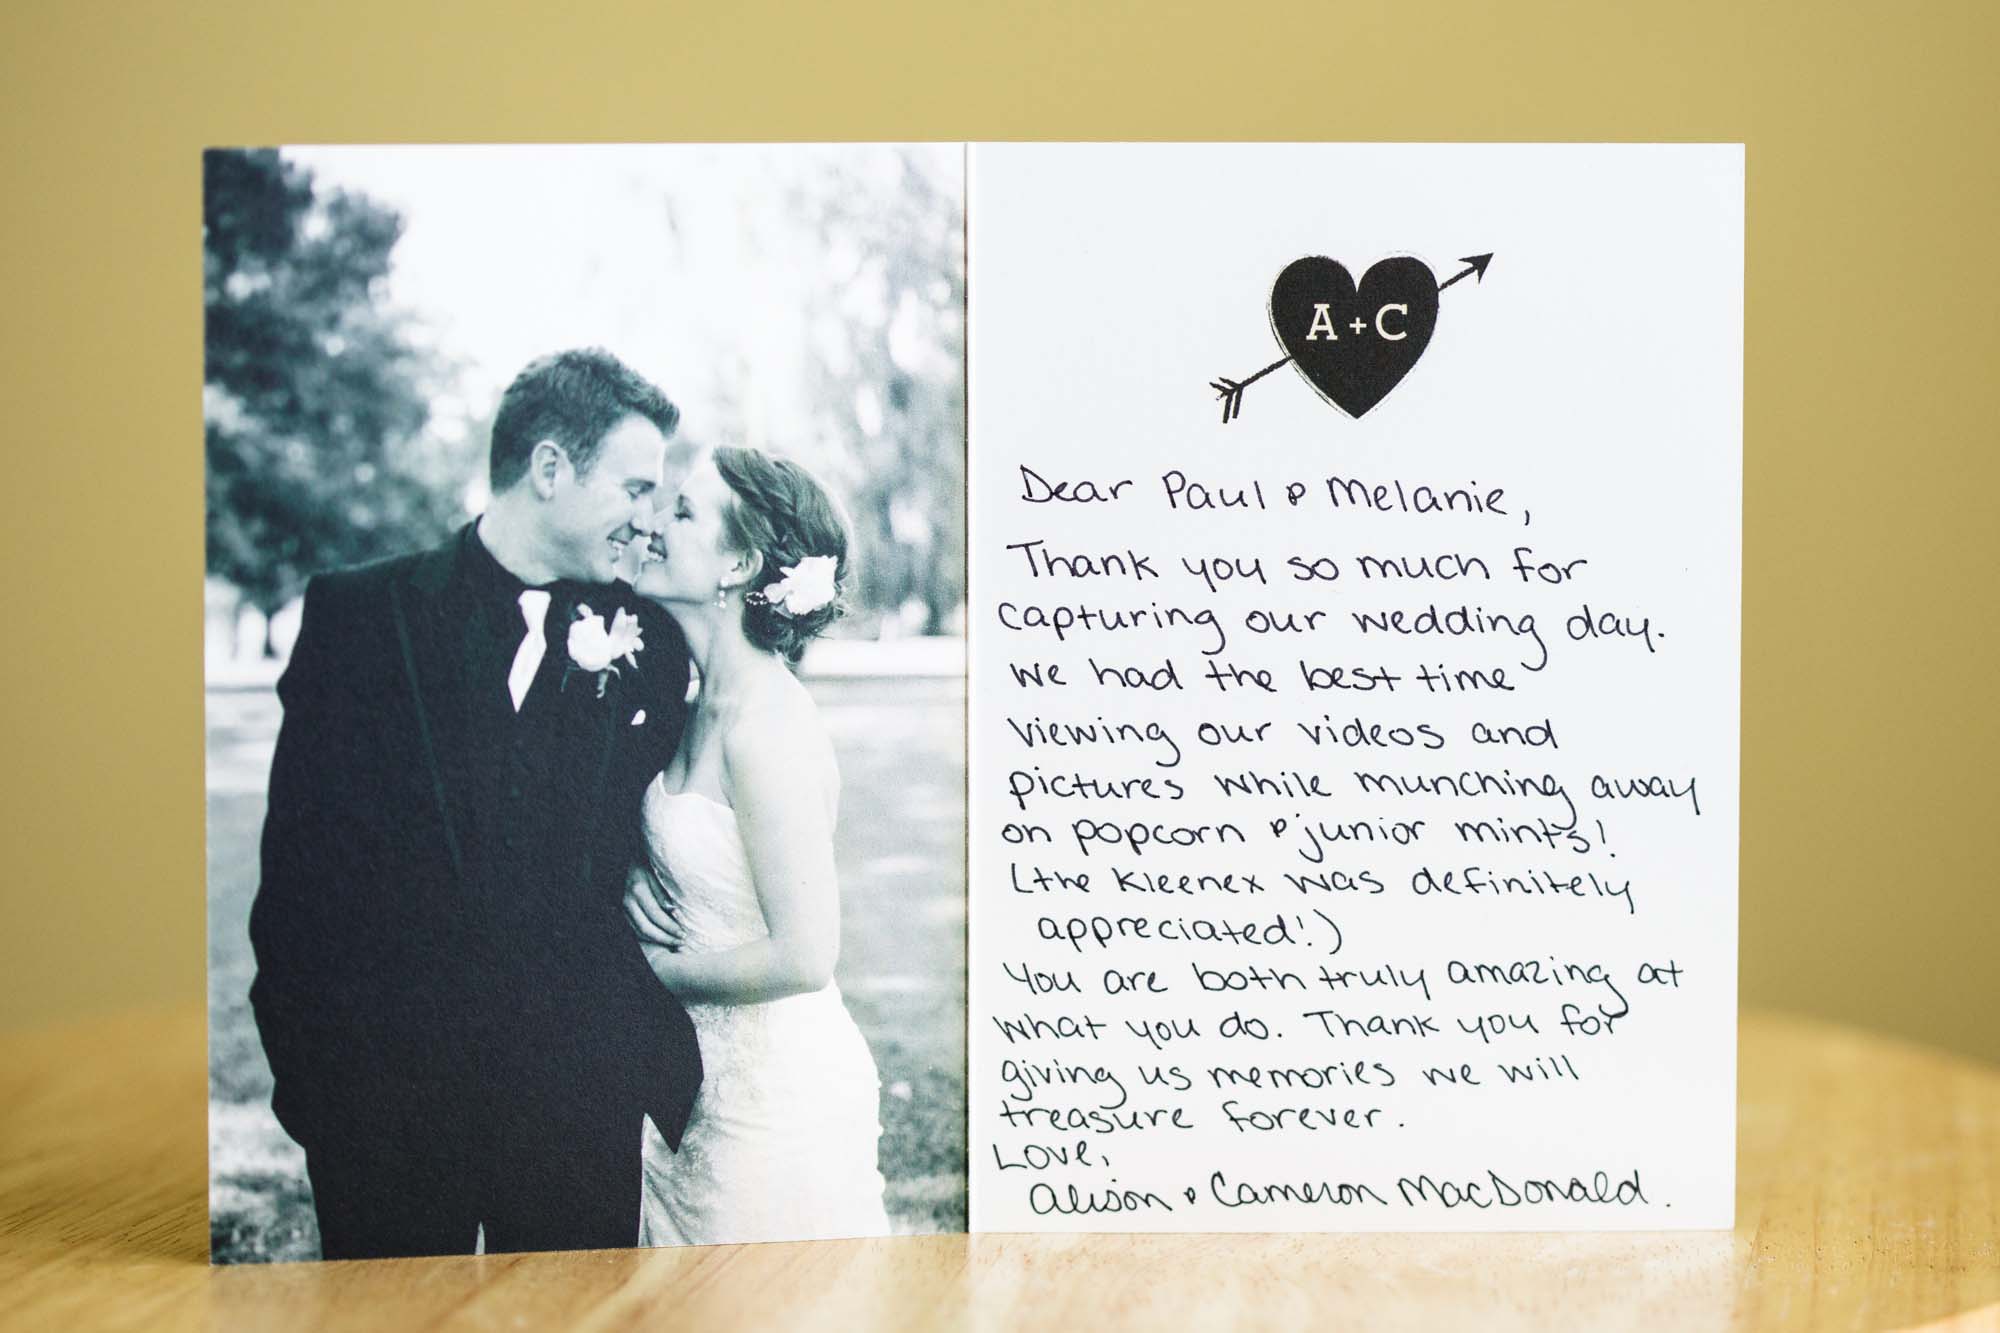 A + C
Dear Paul & Melanie,
Thank you so much for
capturing our wedding day.
We had the best time
viewing our videos and
pictures while munching away
on popcorn & junior mints!
(the Kleenex was definitely
appreciated!)
You are both truly amazing at
what you do. Thank you for
giving us memories we will
treasure forever.
Love,
Alison & Cameron MacDonald.